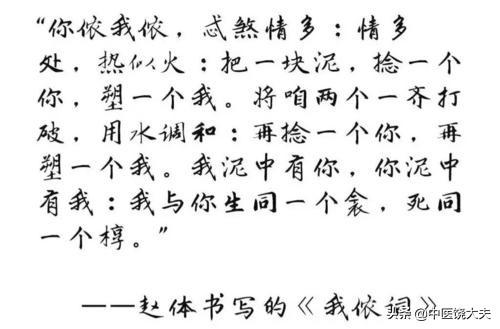 “你侬我侬，忒煞情多：情多
处，热似火：把一块泥，捻一个
你，塑一个我。将咱两个一齐打
破，用水调和：再捻一个你，再
塑一个我。我泥中有你，你泥中
有我：我与你生同一个衾，死同
一个椁。”
——赵体书写的《我侬词》
头条@中医饶大夫